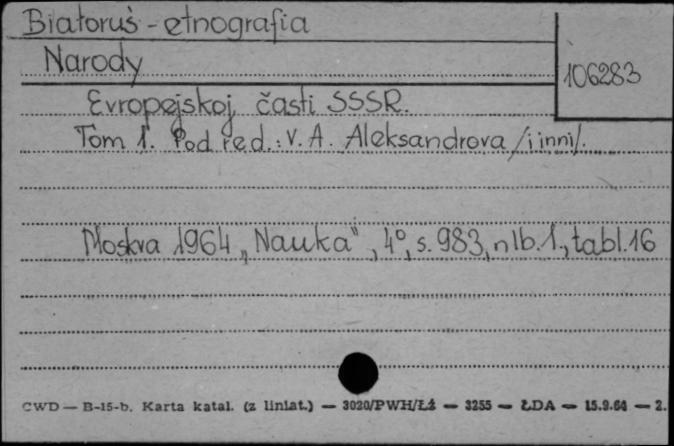 Białoruś - etnografia
Narody
106283
Evropejskoj časti SSSR.
Tom 1. Pod red.: V. A. Aleksandrova /i inni/.
Moskva 1964 „Nauka", 4°, s. 983, nlb. 1, tabl. 16
CWD — B-15-b. Karta katal. (z liniat.) — 3020/PWH/Łż — 3255 — ŁDA — 15.9.64 — 2.